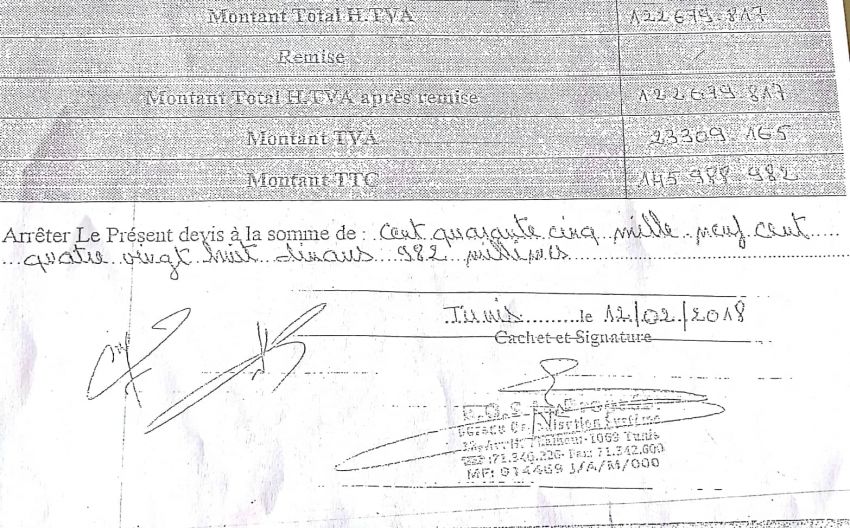 Montant Total H.TVA 122 679.817
Remise /
Montant Total H.TVA après remise 122 679 817
Montant TVA 23309.165
Montant TTC 145 988.982
Arrêter Le Présent devis à la somme de : Cent quarante cinq mille neuf cent
quatre vingt huit dinars 982 millimes
Tunis le 12/02/2018
Cachet et Signature
1069 Tunis
71.340.226- Fax: 71.342.600
MF: 014469 J/A/M/000